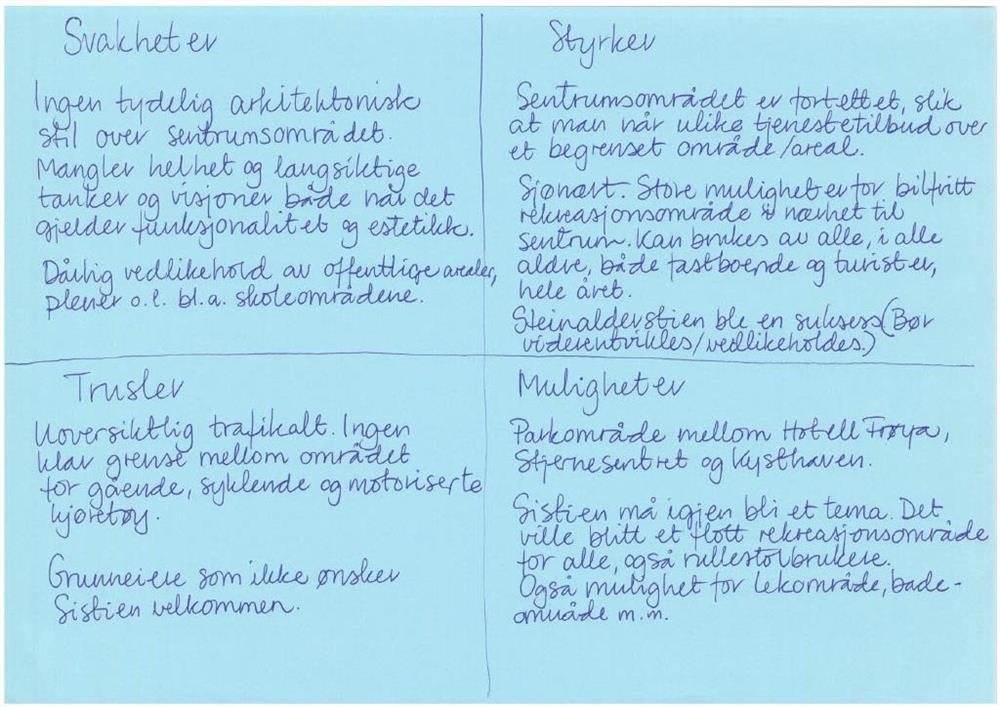 Svakheter
Ingen tydelig arkitektonisk
stil over sentrumsområdet.
Mangler helhet og langsiktige
tanker og visjoner både når det
gjelder funksjonalitet og estetikk.
Dårlig vedlikehold av offentlige arealer,
plener o.l. bl.a. skoleområdene.
Styrker
Sentrumsområdet er fortettet, slik
at man når ulike tjenestetilbud over
et begrenset område/areal.
Sjønært. Store muligheter for bilfritt
rekreasjonsområde i nærhet til
sentrum. Kan brukes av alle, i alle
aldre, både fastboende og turister,
hele året.
Steinalderstien ble en suksess (Bør
videreutvikles/vedlikeholdes.)
Trusler
Uoversiktlig trafikalt. Ingen
klar grense mellom området
for gående, syklende og motoriserte
kjøretøy.
Grunneiere som ikke ønsker
Sistien velkommen.
Muligheter
Parkområde mellom Hotell Frøya,
Stjernesentret og Kysthaven.
Sistien må igjen bli et tema. Det
ville blitt et flott rekreasjonsområde
for alle, også rullestolbrukere.
Også mulighet for lekområde, bade-
område m.m.